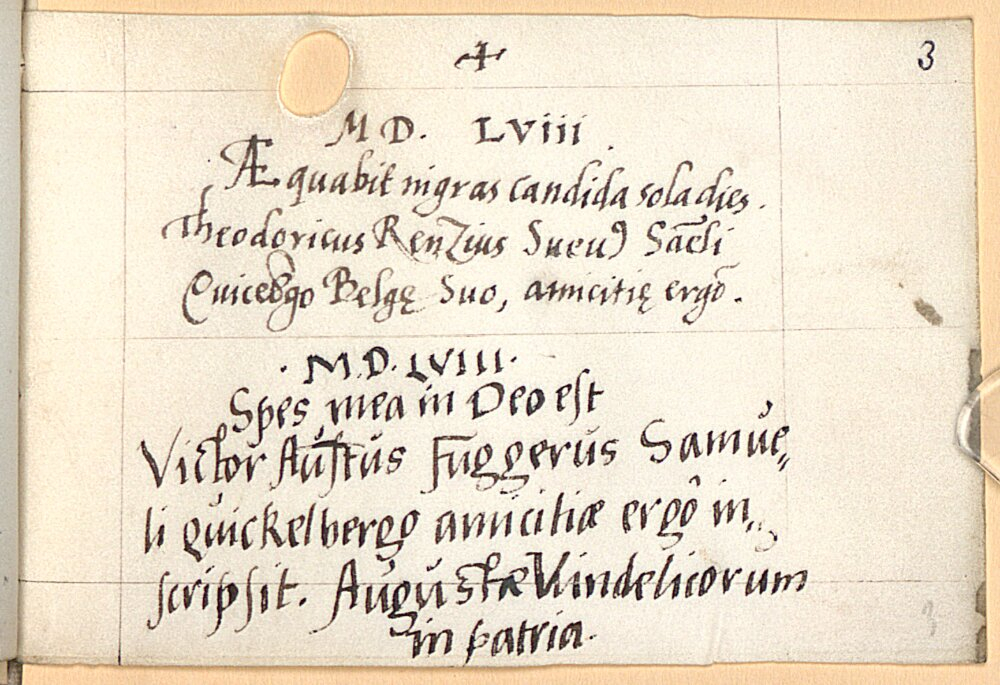 3
M D. LViii
Æquabit nigras candida sola dies.
Theodoricus Renzius Sueu⁹ Sāeli
Quicebgo Belgę Suo, amicitię ergō.
. M.D.LVIII.
Spes mea in Deo est
Victor Aůstůs Fůggerůs Samůe„
li qůickelbergo amicitiæ ergô in„
scripsit. Aůgůstæ Vindelicorum
in patria.
3